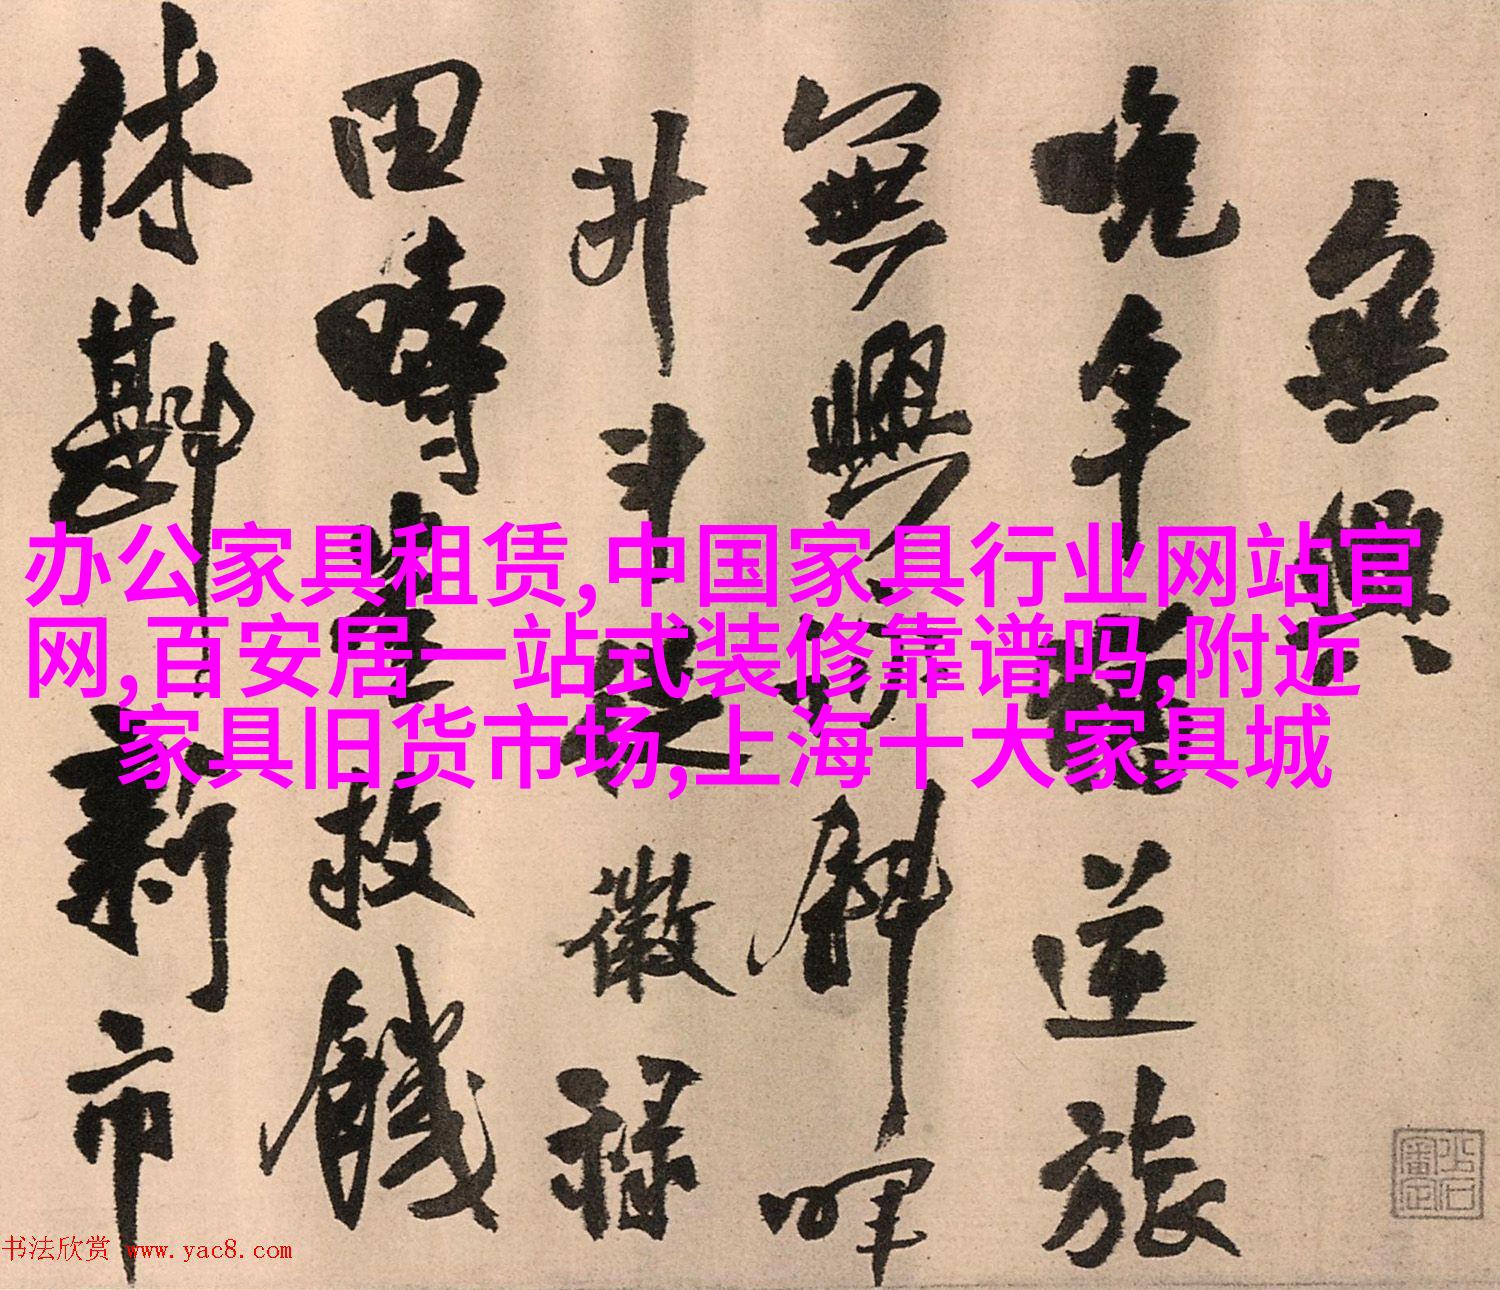 办公家具租赁,中国家具行业网站官
网,百安居一站式装修靠谱吗,附近
家具旧货市场,上海十大家具城
無興
晚年逆旅
無興
升斗祿
田疇故
休斟新市
书法欣赏 www.yac8.com